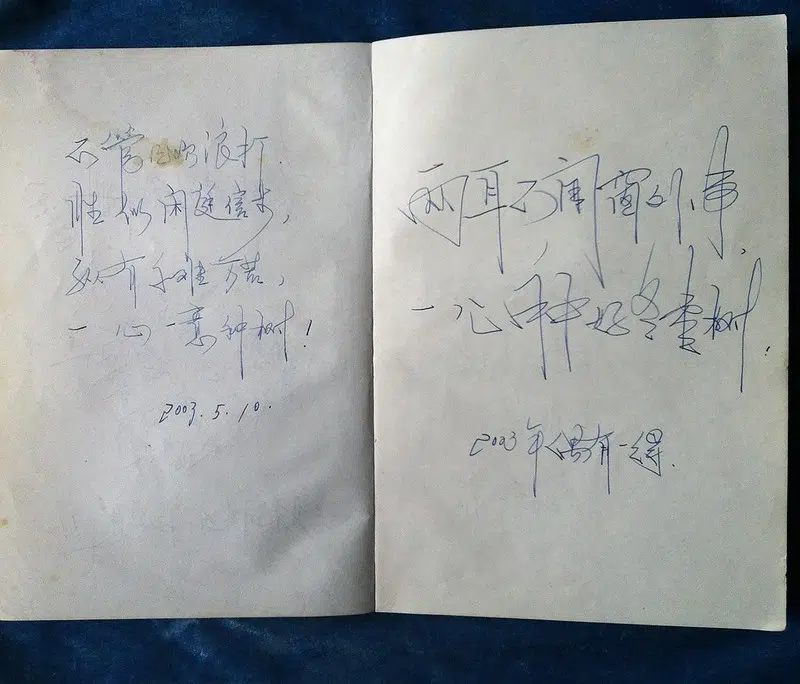 不管风吹浪打
胜似闲庭信步,
纵有千难万苦,
一心一意种树!
2003.5.10.
两耳不闻窗外事,
一心种好冬枣树.
2003年偶有一得.